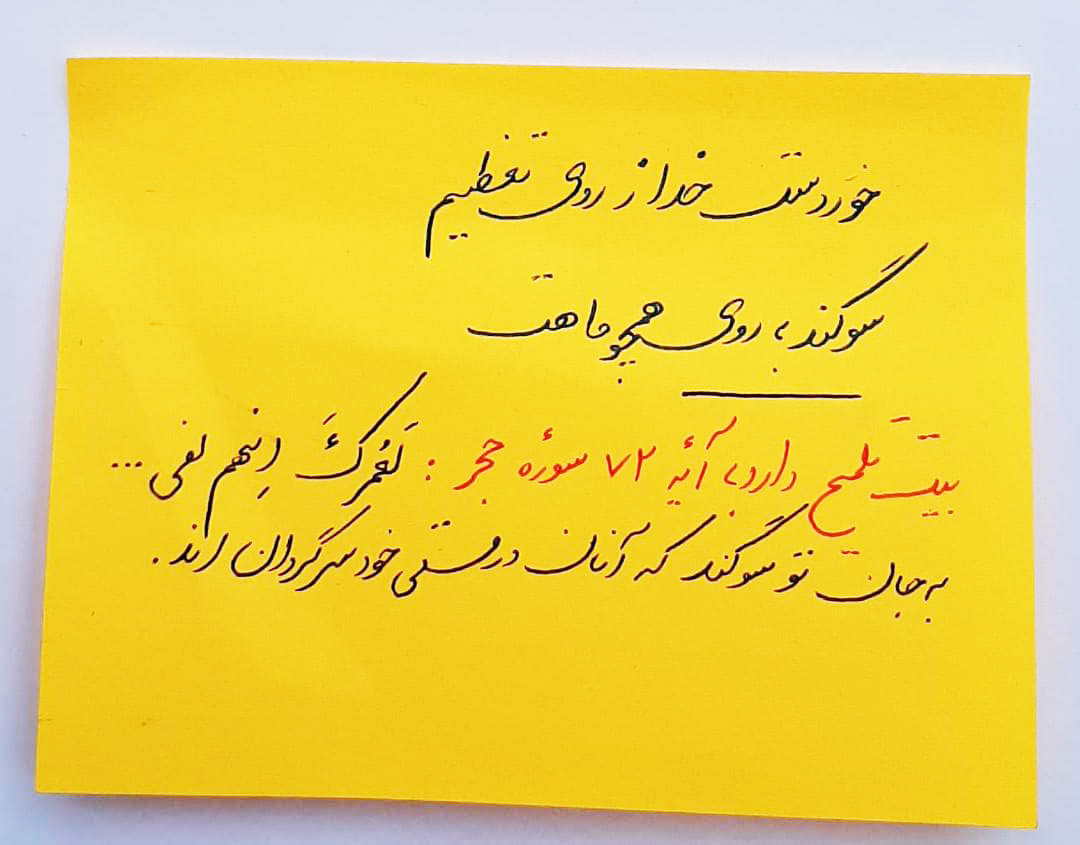 خوردست خدا ز روی تعظیم
سوگند به روی همچو ماهت
بیت تلمیح دارد به آئهٔ ۷۲ سورهٔ حجر : لَعَمْرُکَ اِنهم لفی ...
به جان تو سوگند که آنان در مستی خود سرگردان اند .